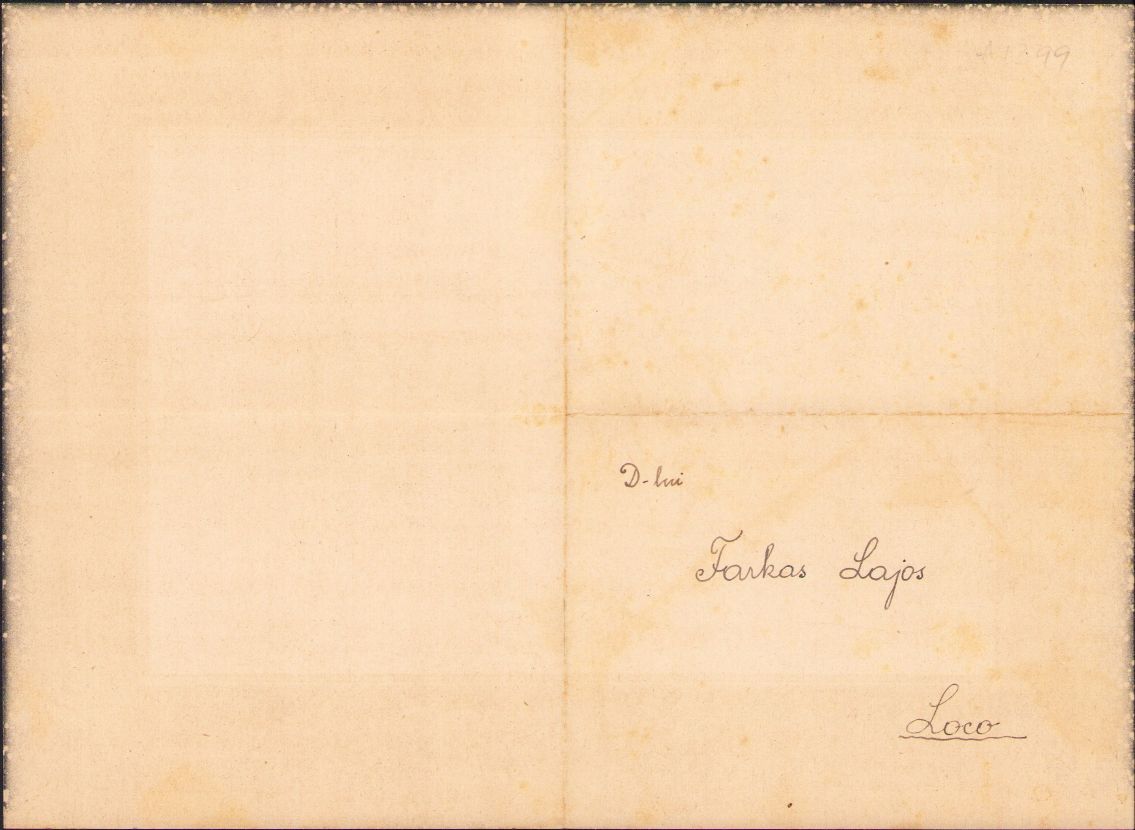 D-lui
Farkas Lajos
Loco